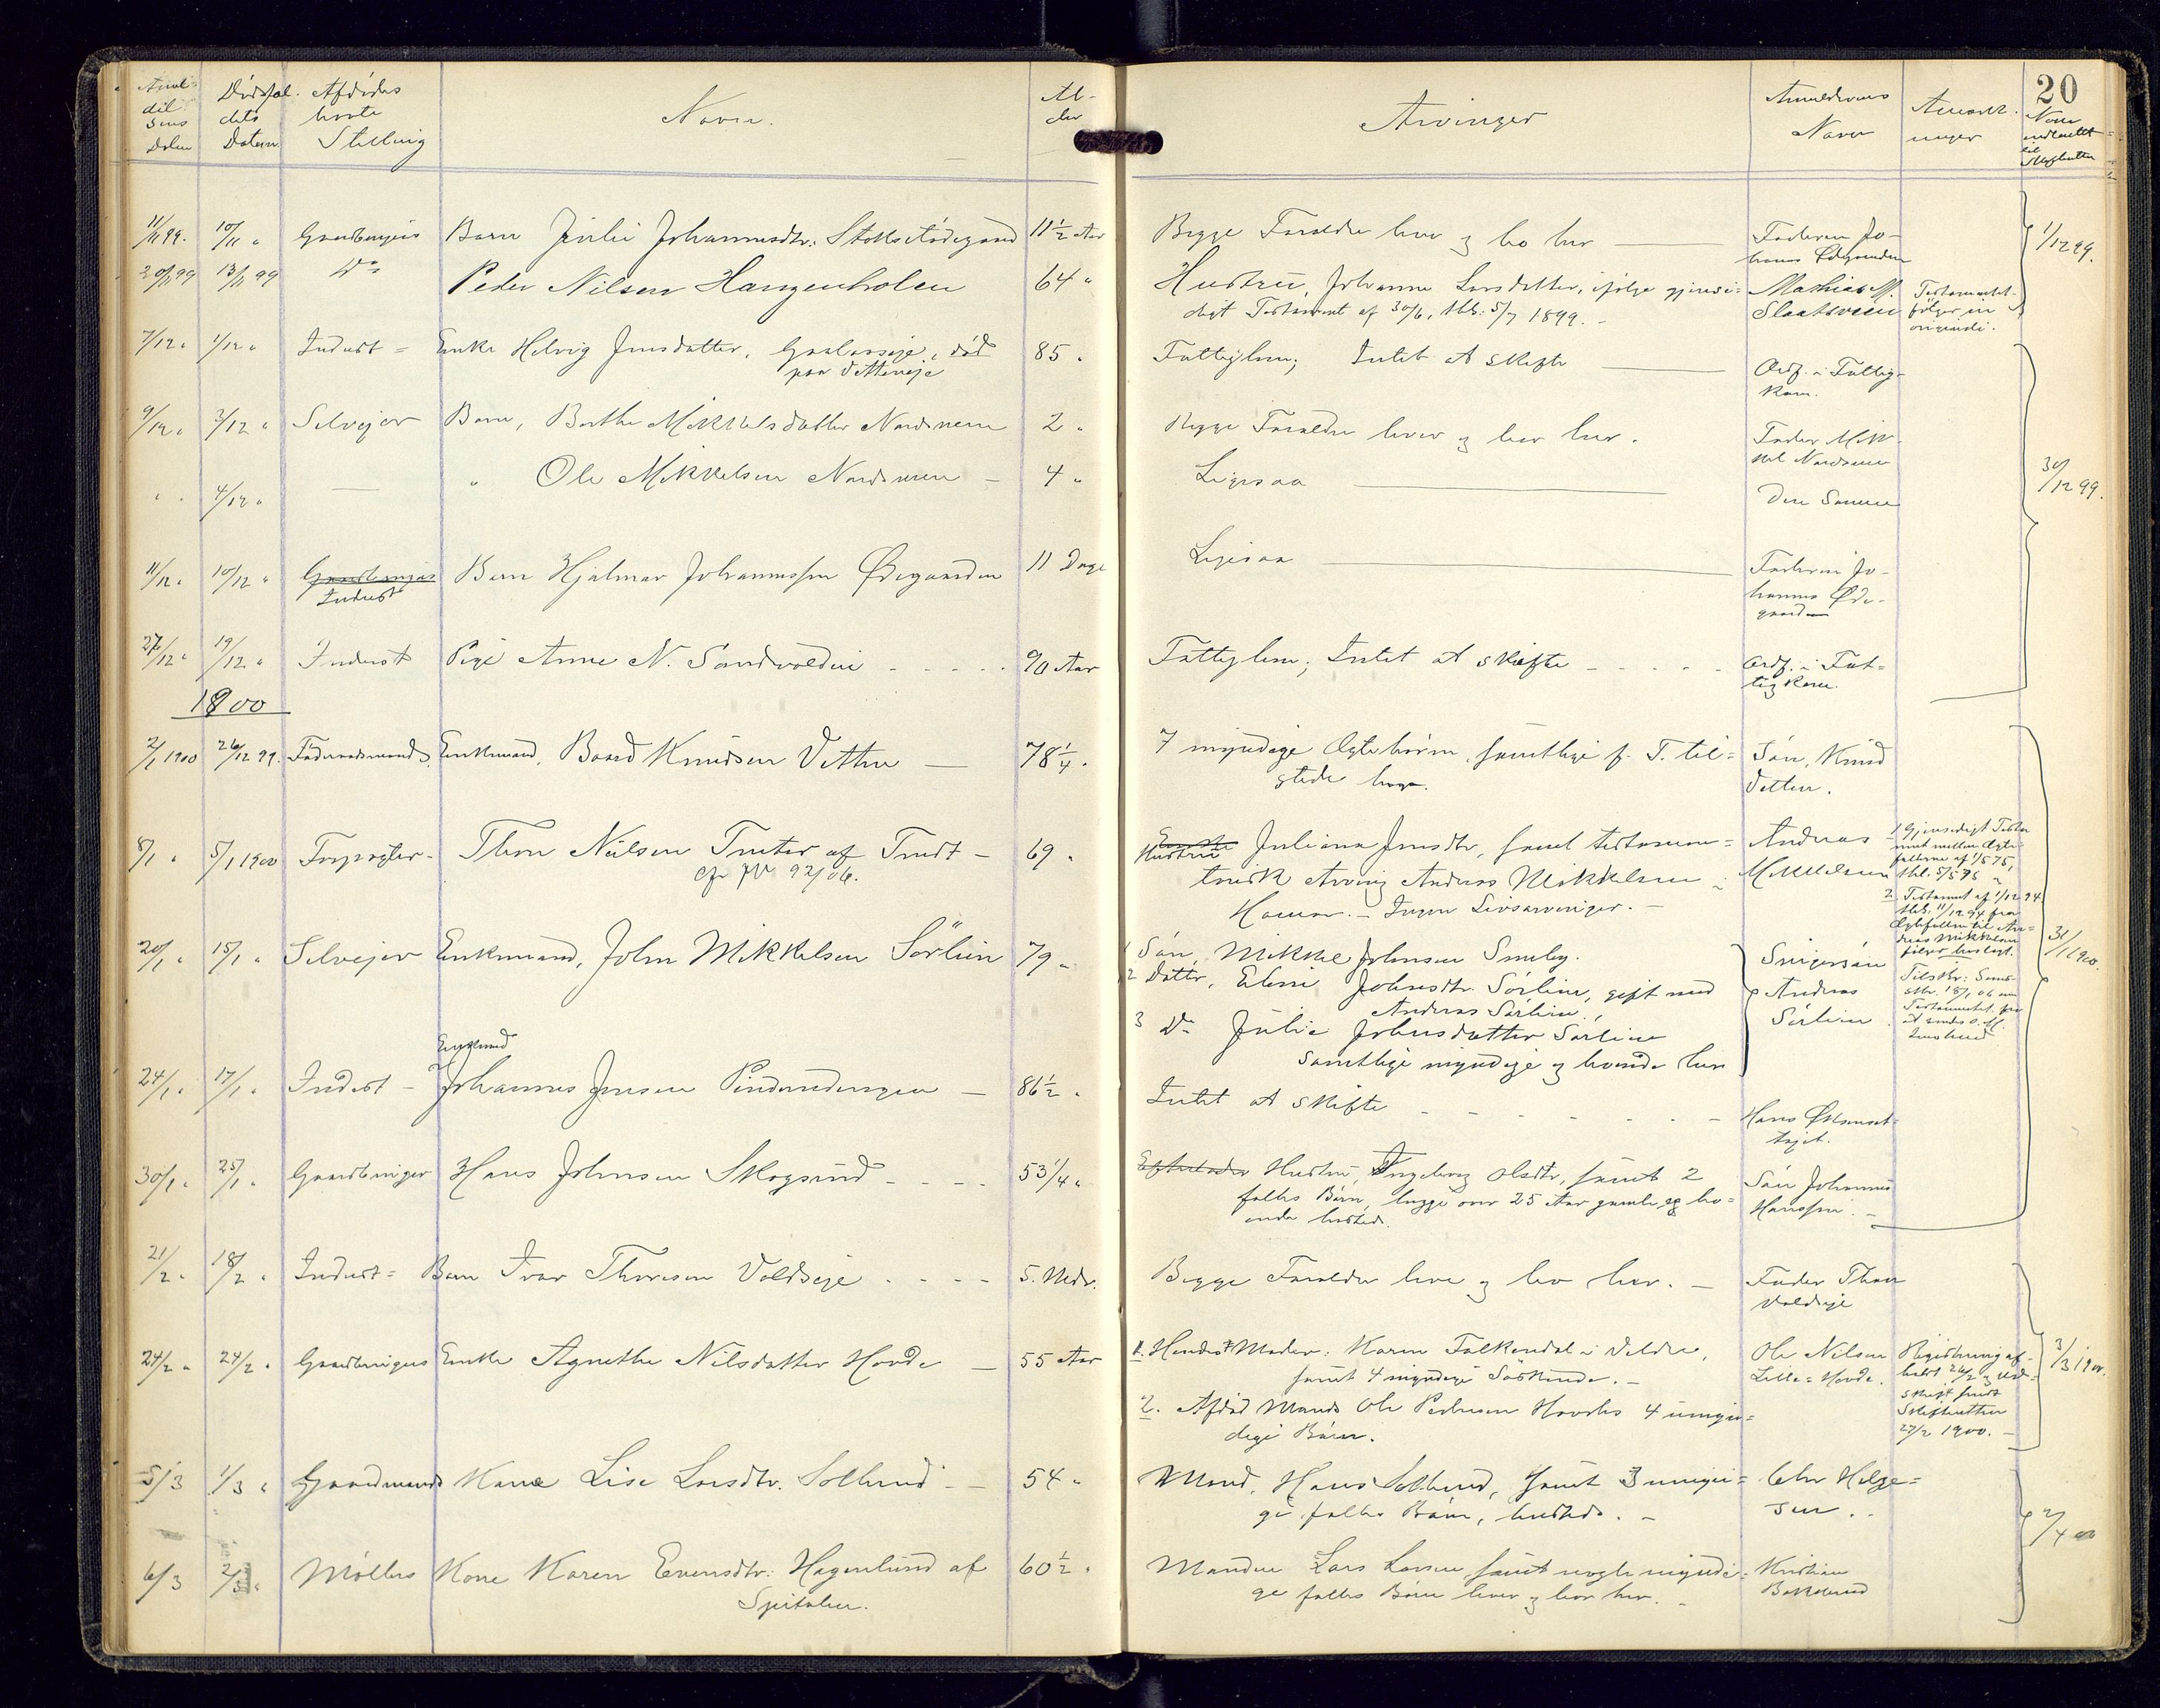 Dödsfal- Afdödes
dets
Datum Stilling
Navn.
Al-
der
Arvinger
Anmelderens
Navn
Anmærk-
ninger
20
11/11 99. 10/11 " Gaardbrugers Barn Julie Johannesdtr. 11½ Aar
Begge Forældre lever og bo her
Faderen Jo-
hannes Ødegaarden
1/12 99.
20/11 99 13/11 99 Do Peder Nilsen Haugenholen 64 "
Hustru, Johanne Larsdatter, ifølge gjensi-
digt Testament af 30/6, thl. 5/7 1899.
Mathias M.
Slaatsveen
Testamentet
følger in
originali.
7/12 " 1/12 " Inderst = Enke Helvig Jensdatter, död 85 "
paa Vetteneje
Fattiglem; Intet at skifte
Ordf. i Fattig-
kom.
9/12 " 3/12 " Selvejer Barn, Berthe Mikkelsdatter Nordsveen 2 "
Begge Forældre lever og bor her.
Fader Mik-
kel Nordsveen
" " 4/12 " — " Ole Mikkelsen Nordsveen — 4 "
Ligesaa
Den Samme
30/12 99.
11/12 " 10/12 " Gaardbrugers Barn Hjalmar Johannessen Ødegaarden 11 Dage
Inderst
Ligesaa
Faderen Jo-
hannes Øde-
gaarden
27/12 " 19/12 " Inderst Pige Anne N. Sandvolden 90 Aar
Fattiglem; Intet at skifte
Ordf. i Fat-
tigkom.
1900
2/1 1900 26/12 99. Föderaadsmand Enkemand, Baard Knudsen Vetten — 78¼ "
7 myndige Ægtebörn, samtlige p. T. til-
stede her.
Sön, Knud
Vetten.
8/1 " 5/1 1900 Forpagter - Thor Nilsen Truter af Trudt — 69 "
cfr JN 92/06.
Enke
Hustru Juliane Jensdtr, samt testamen-
tarisk Arving Andreas Mikkelsen
Hamar. — Ingen Livsarvinger. —
Andreas
Mikkelsen
1 Gjensidigt Testa-
ment mellem Ægte-
fællerne af 1/5 75,
thl. 5/5 75
2. Testament af 1/12 94
thl. 11/12 94 fra
Ægtefællen til An-
dreas Mikkelsen
følger hoslagt.
20/1 " 15/1 " Selvejer Enkemand, John Mikkelsen Sörlien 79 "
1 Sön, Mikkel Johnsen Smeby.
2 Datter, Eline Johnsdtr. Sörlien, gift med
Andreas Sörlien.
3 Do Julie Johnsdatter Sörlien
samtlige myndige og boende her
Svigersön
Andreas
Sörlien
31/1 1900.
Enkemand
24/1 " 17/1 " Inderst - Johannes Jensen Pindendengen — 86½ "
Intet at skifte
30/1 " 25/1 " Gaardbruger Hans Johnsen Skogsrud 53¼ "
Efterlader Hustru, Ingeborg Olsdtr, samt 2
fælles Börn, begge over 25 Aar gamle, og bo-
ende hersteds.
Sön Johannes
Hanssen. —
21/2 " 18/2 " Inderst = Barn Ivar Thoresen Voldseje 5. Mdr.
Begge Forældre leve og bo her. —
Fader Thor
Voldseje
24/2 " 24/2 " Gaardbrugers Enke Agnethe Nilsdatter Hovde — 55 Aar
1. Hendes Moder: Karen Falkendal i Veldre,
samt 4 myndige Söskende. —
2. Afdöd Mands Ole Pedersen Hovdes 4 umyn-
dige Börn.
Ole Nilsen
Lille-Hovde.
Registrering af-
holdt 26/2 og Ud-
skrift sendt
Skifteretten
27/2 1900. —
3/3 1900.
5/3 1/3 " Gaardmands Kone Lise Larsdtr. Sollund — 54 "
Mand, Hans Solberg, samt 3 umyndi-
ge fælles Börn, hersteds. —
Helge-
sen.
2/4 00
6/3 2/3 " Möllers Kone Karen Evensdtr. Hagenlund af 60½ "
Spitalen.
Manden Lars Larsen samt nogle myndi-
ge fælles Börn lever og bor her. —
Kristian
Bakkerud